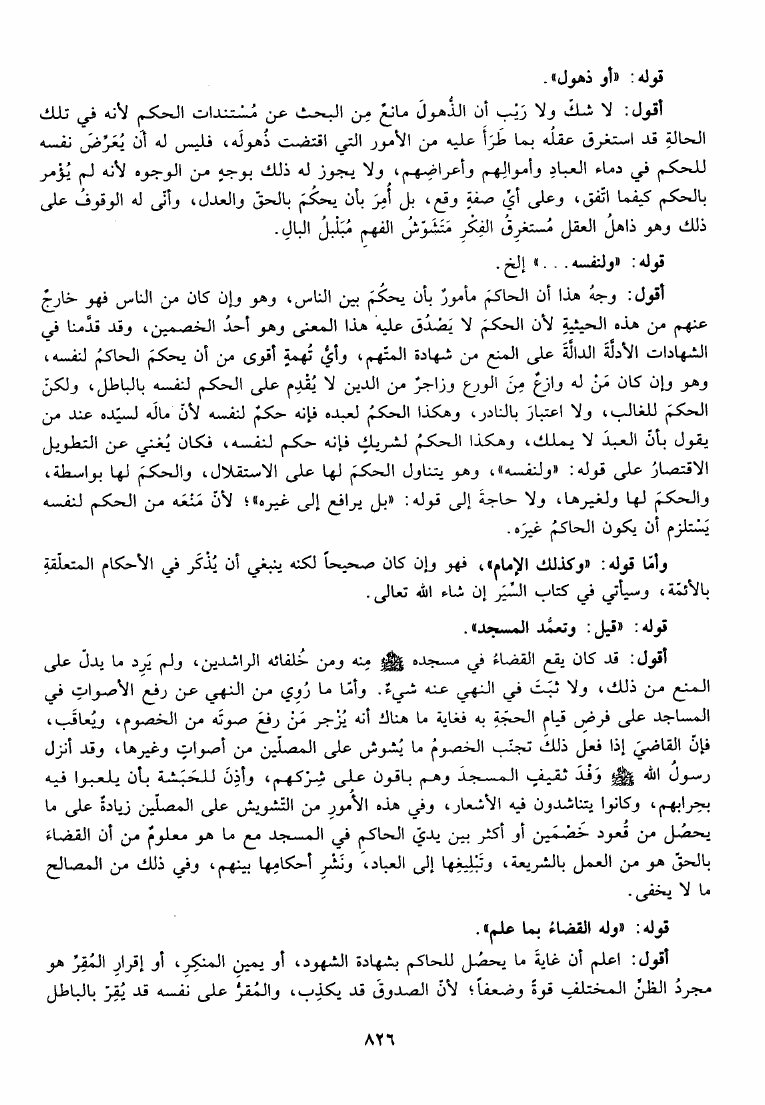 قوله: «أو ذهول».
أقول: لا شكَّ ولا رَيْب أن الذُّهولَ مانعٌ مِن البحث عن مُسْتندات الحكم لأنه في تلك
الحالةِ قد استغرق عقلُه بما طَرَأَ عليه من الأمور التي اقتضت ذُهولَه، فليس له أن يُعَرِّضَ نفسه
للحكم في دماء العبادِ وأموالِهم وأعراضِهم، ولا يجوز له ذلك بوجهٍ من الوجوه لأنه لم يُؤْمر
بالحكم كيفما اتّفق، وعلى أيِّ صفةٍ وقع، بل أُمِرَ بأن يحكُمَ بالحقّ والعدل، وأنّى له الوقوفُ على
ذلك وهو ذاهلُ العقل مُستغرِقُ الفِكْرِ مَتَشَوّشُ الفهمِ مُبَلْبلُ البالِ.
قوله: «ولنفسه...» إلخ.
أقول: وجهُ هذا أن الحاكمَ مأمورٌ بأن يحكُمَ بين الناس، وهو وإن كان من الناس فهو خارجٌ
عنهم من هذه الحيثيةِ لأن الحكمَ لا يَصْدُق عليه هذا المعنى وهو أحدُ الخصمين، وقد قدَّمنا في
الشهادات الأدلَّةَ الدالَّةَ على المنع من شهادة المتّهم، وأيُّ تُهمةٍ أقوى من أن يحكمَ الحاكمُ لنفسه،
وهو وإن كان مَنْ له وازعٌ مِنَ الورع وزاجرٌ من الدين لا يُقْدِم على الحكم لنفسه بالباطل، ولكنّ
الحكمَ للغالب، ولا اعتبارَ بالنادر، وهكذا الحكمُ لعبده فإنه حكمٌ لنفسه لأنّ مالَه لسيّده عند من
يقول بأنّ العبدَ لا يملك، وهكذا الحكمُ لشريكٍ فإنه حكم لنفسه، فكان يُغني عن التطويل
الاقتصارُ على قوله: «ولنفسه»، وهو يتناول الحكمَ لها على الاستقلال، والحكمَ لها بواسطة،
والحكمَ لها ولغيرها، ولا حاجةَ إلى قوله: «بل يرافع إلى غيره»؛ لأنّ مَنْعَه من الحكم لنفسه
يَسْتلزم أن يكون الحاكمُ غيرَه.
وأمّا قوله: «وكذلك الإمام»، فهو وإن كان صحيحاً لكنه ينبغي أن يُذْكَر في الأحكام المتعلّقةِ
بالأئمّة، وسيأتي في كتاب السِّيَر إن شاء الله تعالى.
قوله: «قيل: وتعمُّد المسجد».
أقول: قد كان يقع القضاءُ في مسجده ﷺ مِنه ومن خُلفائه الراشدين، ولم يَرِد ما يدلّ على
المنع من ذلك، ولا ثبَتَ في النهي عنه شيءٌ. وأمّا ما رُوِي من النهي عن رفع الأصواتِ في
المساجد على فرضِ قيامِ الحجّةِ به فغاية ما هناك أنه يُزْجر مَنْ رفعَ صوتَه من الخصوم، ويُعاقَب،
فإنّ القاضيَ إذا فعل ذلكَ تجنّب الخصومُ ما يُشوش على المصلّين من أصواتٍ وغيرها، وقد أنزل
رسولُ الله ﷺ وَفْدَ ثقيفٍ المسجدَ وهم باقون على شِرْكهم، وأذِنَ للحَبَشة بأن يلعبوا فيه
بحِرابهم، وكانوا يتناشدون فيه الأشعار، وفي هذه الأمورِ من التّشويش على المصلّين زيادةٌ على ما
يحصُل من قُعود خَصْمَين أو أكثر بين يديّ الحاكم في المسجد مع ما هو معلومٌ من أن القضاءَ
بالحقّ هو من العمل بالشريعة، وتَبْليغها إلى العباد، ونَشْرِ أحكامِها بينهم، وفي ذلك من المصالح
ما لا يخفى.
قوله: «وله القضاءُ بما علم».
أقول: اعلم أن غايةَ ما يحصُل للحاكم بشهادة الشهود، أو يمينِ المنكِرِ، أو إقرارِ المُقِرّ هو
مجردُ الظنِّ المختلفِ قوةً وضعفاً؛ لأنّ الصدوقَ قد يكذِب، والمُقرُّ على نفسه قد يُقِرّ بالباطل
٨٢٦